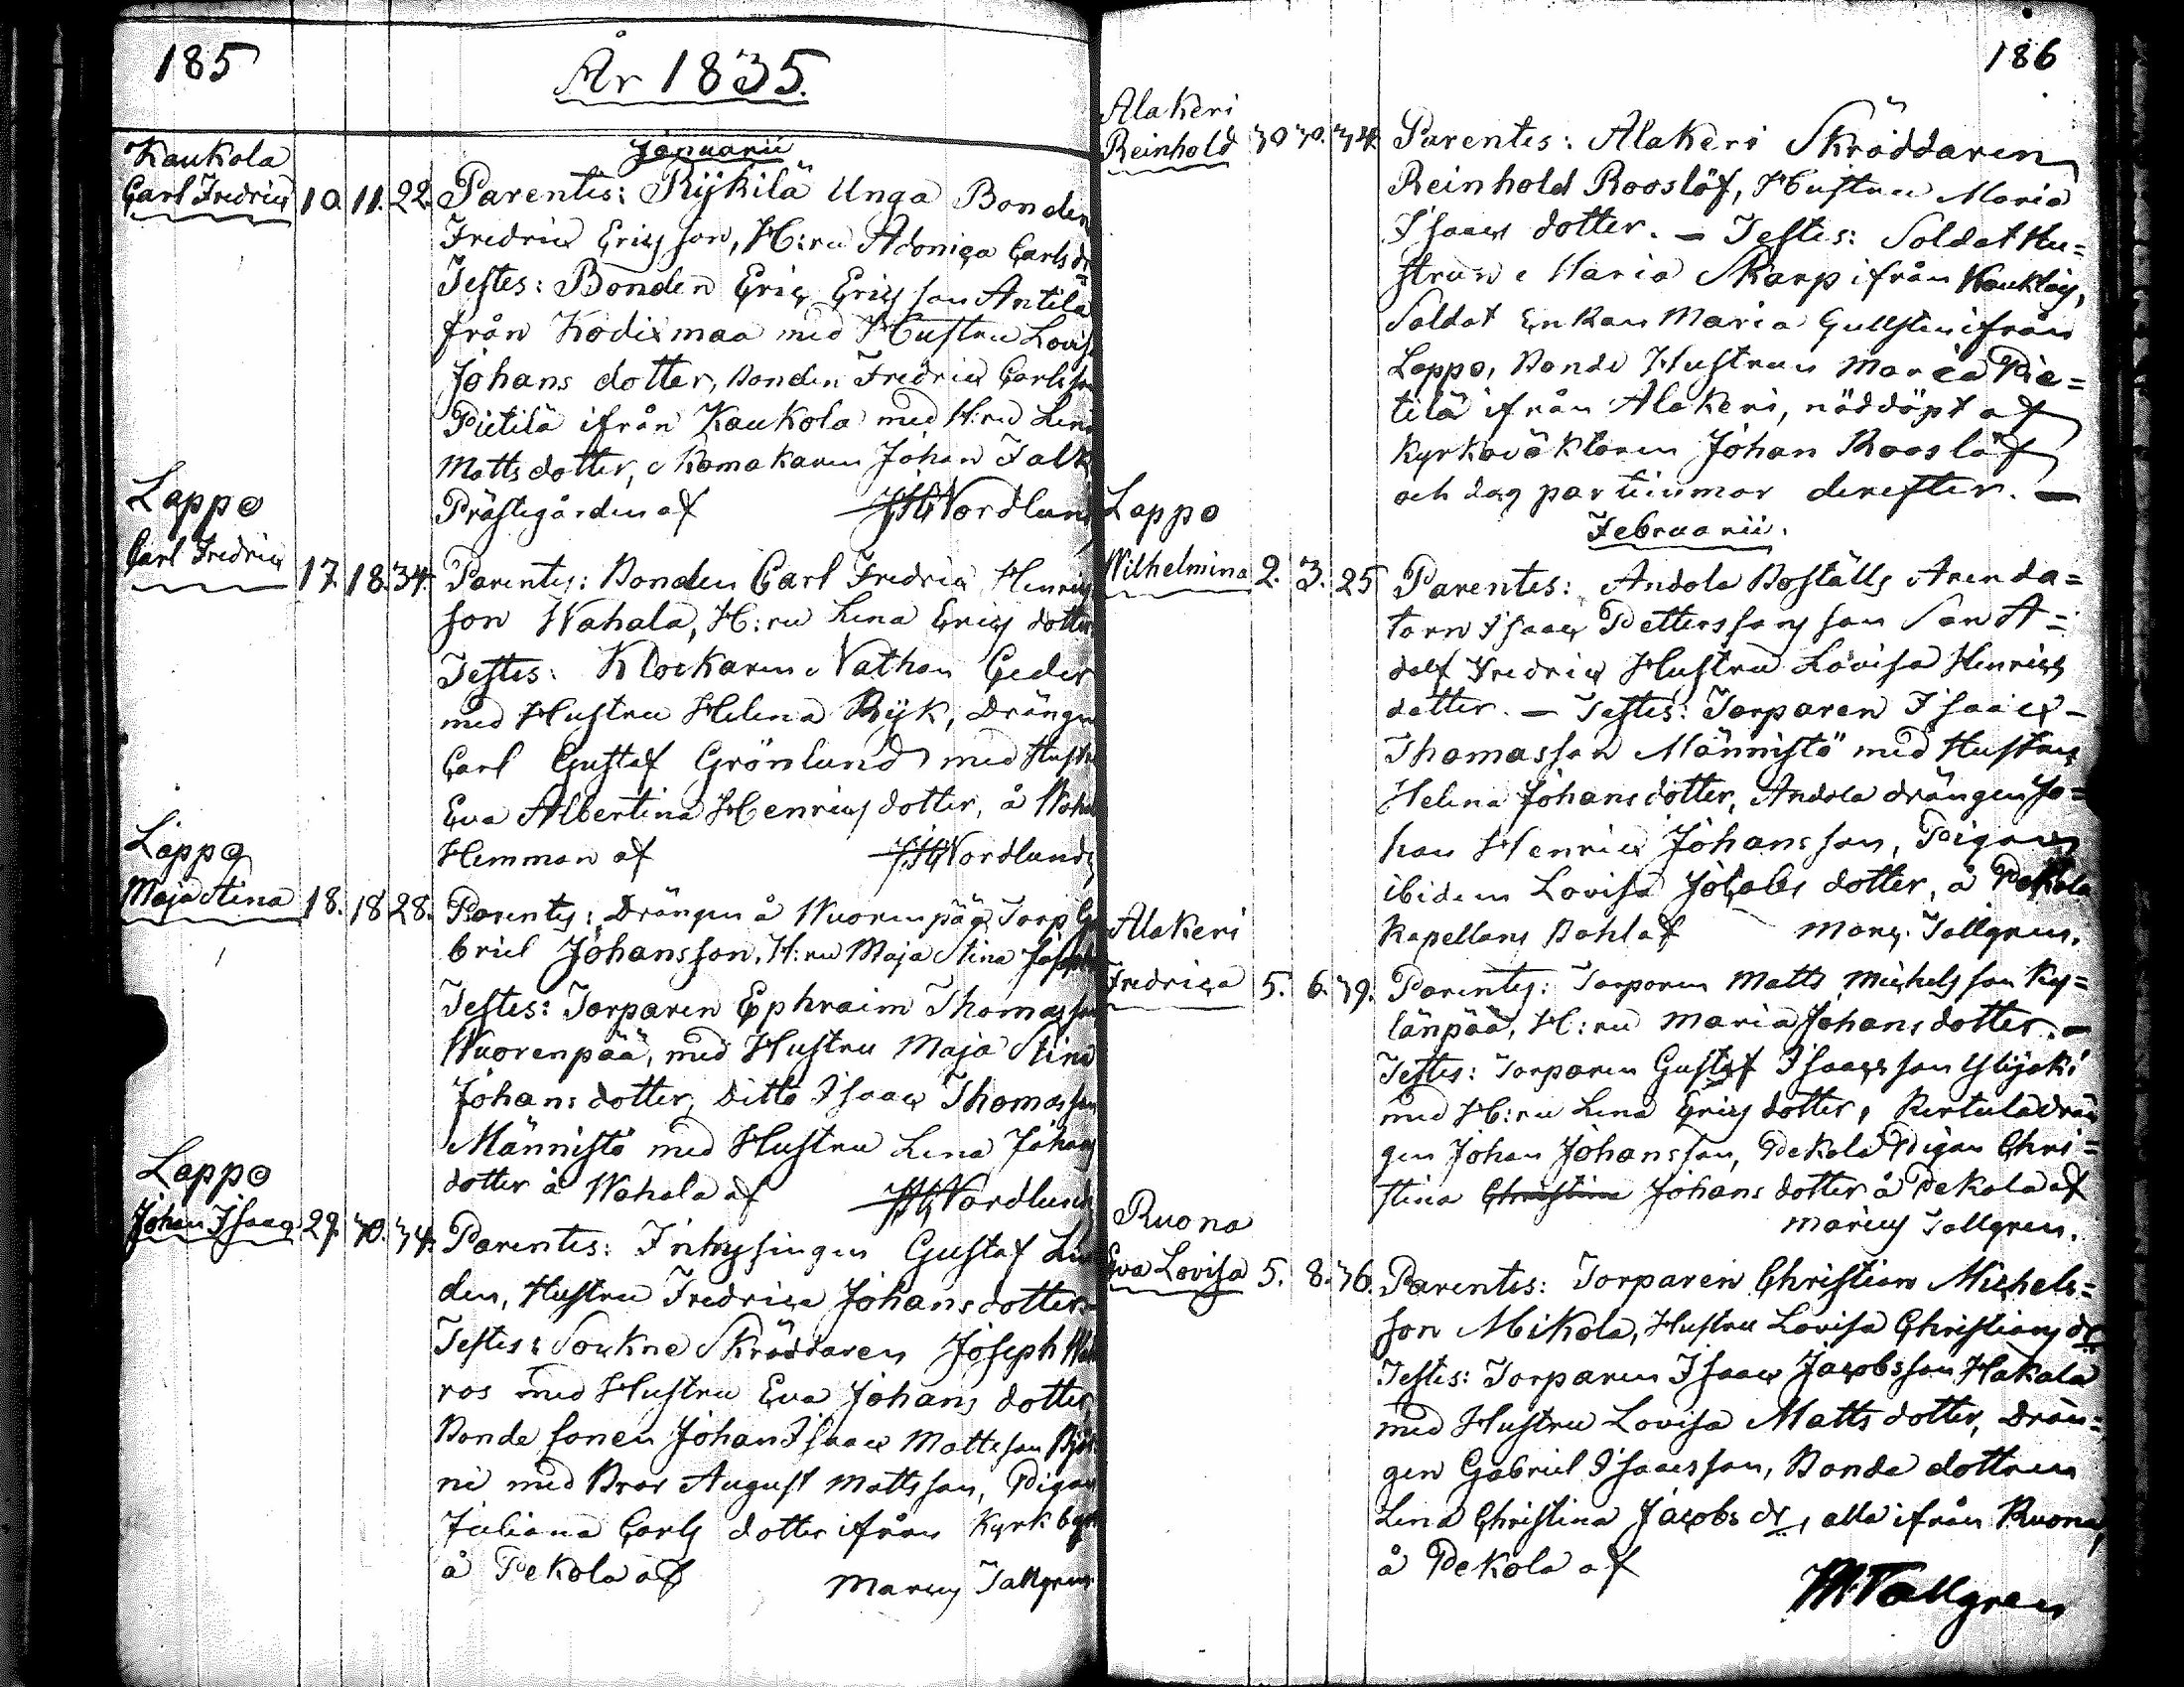 185
År 1835.
Januarii
Kaukola
Carl Fredric 10. 11. 22. Parentes: Rijkilä Unga Bonden
Fredric Ericsson, H:ru Adonica Carlsdr
Testes: Bonden Eric Ericsson Antila
från Kodixmaa med Hustru Lovisa
Johans dotter, Bonden Fredric Carlsson
Pietilä ifrån Kaukola med H:ru Lena
Matts dotter, Skomakaren Johan Falk
Prästegården af JHNordlund
Lappo
Carl Fredric 17. 18. 34. Parentes: Bonden Carl Fredric Henrics
son Wahala, H:ru Lena Erics dotter
Testes: Klockaren Nathan Ceder
med Hustru Helena Rijk, Drängen
Carl Gustaf Grönlund med Hustru
Eva Albertina Henrics dotter, å Waha
Hemman af JHNordlund
Lappo
Maja Stina 18. 18 28. Parentes: Drängen å Wuorenpää Torp Ga
briel Johansson, H:ru Maja Stina Josephs
Testes: Torparen Ephraim Thomasson
Wuorenpää, med Hustru Maja Stina
Johans dotter, Ditto Isaac Thomasson
Männistö med Hustru Lena Johans
dotter å Wahala af JHNordlund
Lappo
Johan Isaac 29. 30. 34. Parentes: Inhysingen Gustaf Lin
den, Hustru Fredrica Johans dotter
Testes: Sockne Skräddaren Joseph
ros med Hustru Eva Johans dotter
Bonde sonen Johan Isaac Mattsson
ni med Bror August Mattsson, Pigan
Juliana Carls dotter ifrån Kyrkbyn
å Pekola af Marcus Tallgren
186
Alakeri
Reinhold 30 30. 34. Parentes: Alakeri Skräddaren
Reinhold Rooslöf, Hustru Maria
Isaacs dotter. — Testes: Soldat Hu=
strun Maria Skarp ifrån
Soldat Enkan Maria Gullsten ifrån
Lappo, Bonde Hustrun Maria Pie=
tilä ifrån Alakeri, nöddöpt af
Kyrkoväktaren Johan Rooslöf
och dag par timmar derefter. —
Februarii.
Lappo
Wilhelmina 2. 3. 25 Parentes: Andola Boställs Arenda=
torn Isaac Petterssons son San A=
dolf Fredric Hustru Lovisa Henrics
dotter. — Testes: Torparen Isaac
Thomasson Männistö med Hustru
Helena Johans dotter, Andola drängen Jo=
han Henric Johansson, Pigan
ibidem Lovisa Jacobs dotter, å Pekola
Kapellans Bohl af Marcus Tallgren.
Alakeri
Fredrica 5. 6. 39. Parentes: Torparen Matts Michelsson Ky=
länpää, H:ru Maria Johans dotter. —
Testes: Torparen Gustaf Isaacsson Ylijoki
med H:ru Lena Erics dotter, Pertula drän
gen Johan Johansson, Pekola Pigan Chri=
stina Christina Johans dotter å Pekola af
Marcus Tallgren.
Ruona
Eva Lovisa 5. 8. 36. Parentes: Torparen Christian Michels=
son Mikola, Hustru Lovisa Christians dr
Testes: Torparen Isaac Jacobsson Hakala
med Hustru Lovisa Matts dotter, Drän=
gen Gabriel Isaacsson, Bonde dottren
Lena Christina Jacobs dr, alla ifrån Ruona,
å Pekola af
M.Tallgren